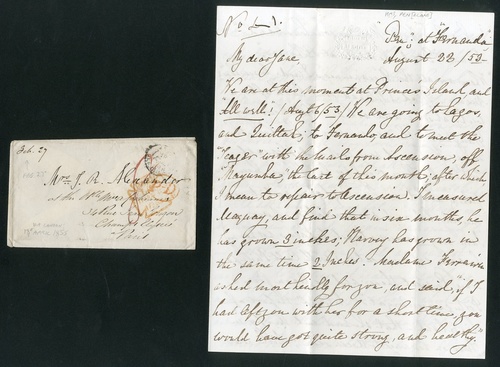 Feb. 27
Mrs J. R. Alexander
at the
Champs Elysees
Paris
No. 21.
HMS PENELOPE
"Pen": at "Fernandas"
My dear Jane,
August 22/53
We are at this moment at Princes Island and
all well! (Augt 6/53) We are going to Lagos,
and Quittah, to Fernando, and to meet the
"Teazer" with the mails from Ascension, off
"Mayumba" the last of this month; after which
I mean to repair to Ascension. I measured
and find that in six months, he
has grown 3 inches; Harvey has grown in
the same time 2 Inches. Madame Ferreira
asked most kindly for you, and said, "if I
had left you with her for a short time, you
would have got quite strong, and healthy."